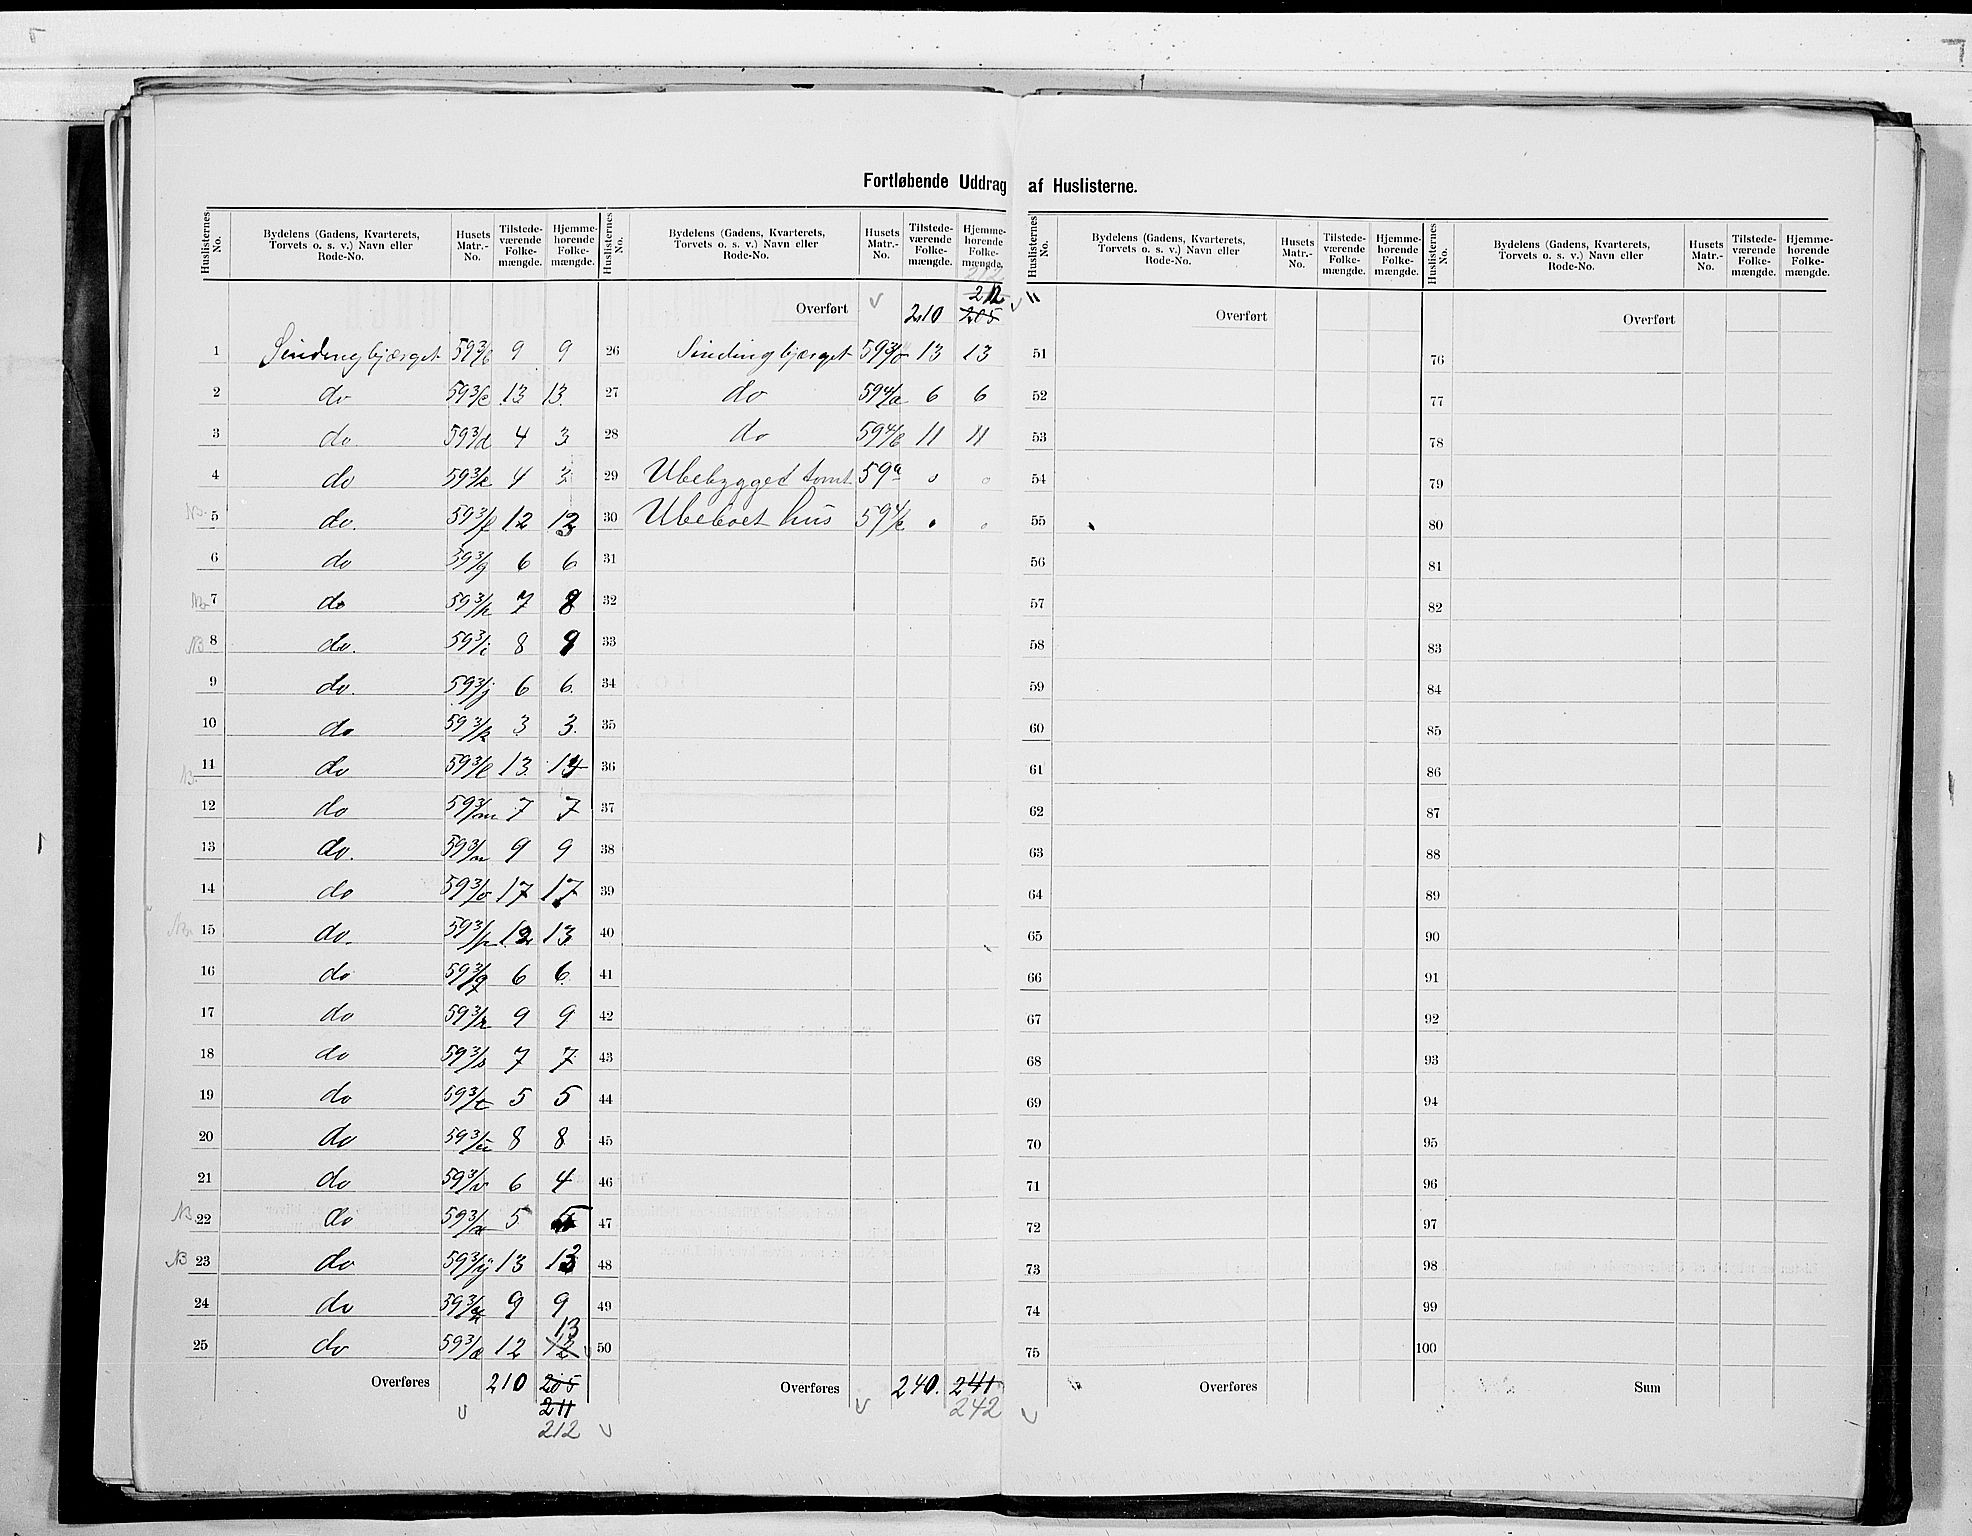 Fortløbende Uddrag af Huslisterne.
Huslisternes No. | Bydelens (Gadens, Kvarterets, Torvets o. s. v.) Navn eller Rode-No. | Husets Matr.-No. | Tilstedeværende Folkemængde. | Hjemmehørende Folkemængde.
1 Sindingbjærget 593/b 9 9
2 do 593/c 13 13
3 do 593/d 4 3
4 do 593/e 4 3
NB. 5 do. 593/f 12 13
6 do 593/g 6 6
NB 7 do 593/h 7 8
NB 8 do. 593/i 8 9
9 do. 593/j 6 6
10 do 593/k 3 3
NB. 11 do 593/l 13 14
12 do 593/m 7 7
13 do. 593/n 9 9
14 do 593/o 17 17
NB 15 do. 593/p 12 13
16 do 593/q 6 6
17 do 593/r 9 9
18 do 593/s 7 7
19 do 593/t 5 5
20 do 593/u 8 8
21 do 593/v 6 4
NB. 22 do 593/x 5 5
NB 23 do 593/y 13 13
24 do 593/z 9 9
25 do 593/æ 12 12 13
Overføres 210 205
211
212
Huslisternes No. | Bydelens (Gadens, Kvarterets, Torvets o. s. v.) Navn eller Rode-No. | Husets Matr.-No. | Tilstedeværende Folkemængde. | Hjemmehørende Folkemængde.
212
212
Overført 210 205
26 Sindingbjærget 593/ø 13 13
27 do 594/a 6 6
28 do 594/b 11 11
29 Ubebygget tomt 59a 0 0
30 Ubeboet hus 594/c 0 0
31
32
33
34
35
36
37
38
39
40
41
42
43
44
45
46
47
48
49
50
Overføres 240. 241
242
Huslisternes No. | Bydelens (Gadens, Kvarterets, Torvets o. s. v.) Navn eller Rode-No. | Husets Matr.-No. | Tilstedeværende Folkemængde. | Hjemmehørende Folkemængde.
Overført
51
52
53
54
55
56
57
58
59
60
61
62
63
64
65
66
67
68
69
70
71
72
73
74
75
Overføres
Huslisternes No. | Bydelens (Gadens, Kvarterets, Torvets o. s. v.) Navn eller Rode-No. | Husets Matr.-No. | Tilstedeværende Folkemængde. | Hjemmehørende Folkemængde.
Overført
76
77
78
79
80
81
82
83
84
85
86
87
88
89
90
91
92
93
94
95
96
97
98
99
100
Sum